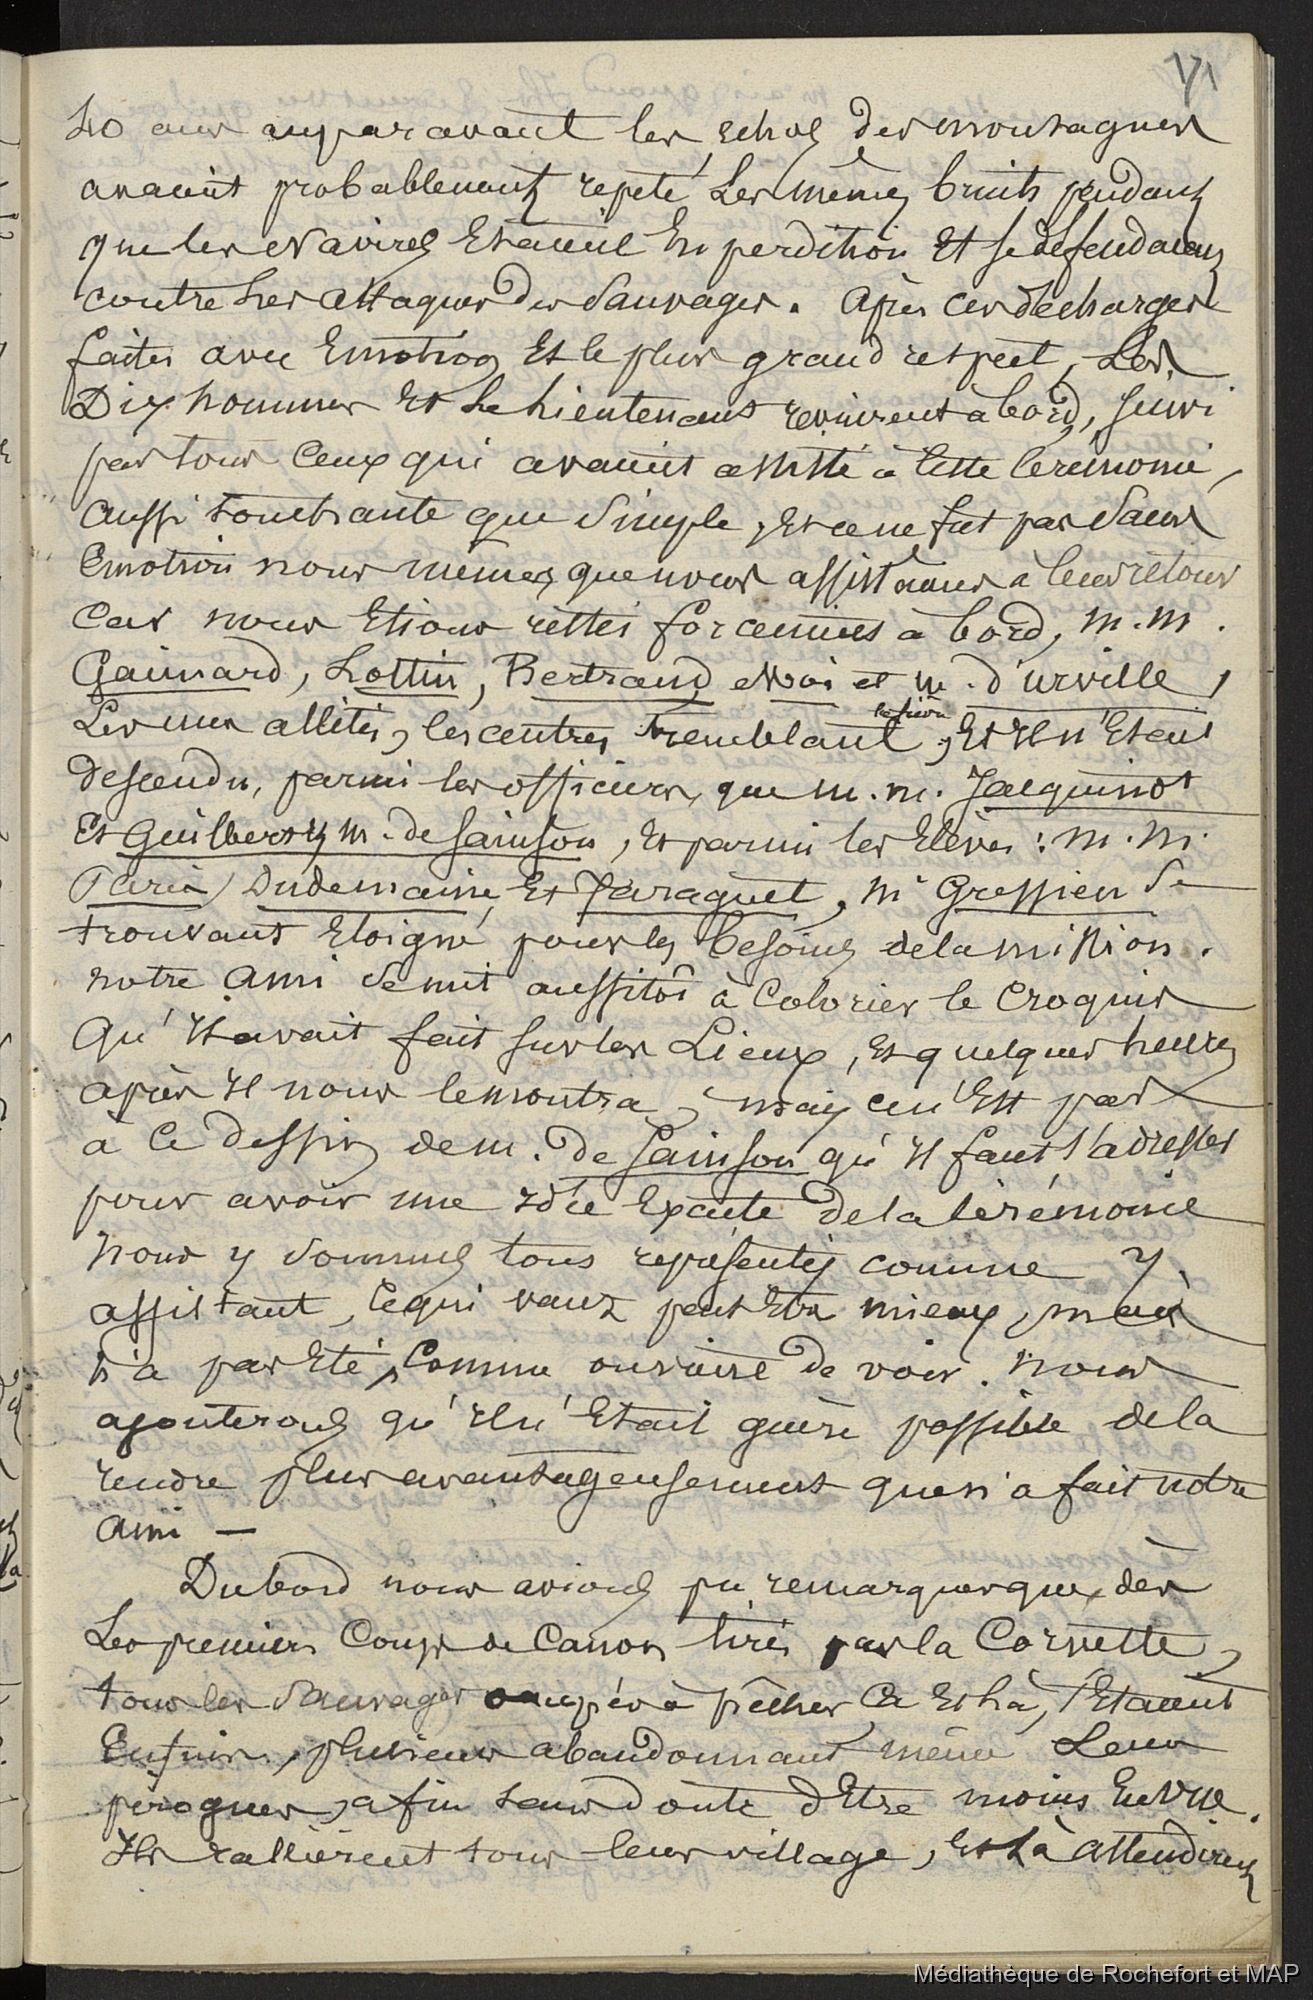 171
40 ans auparavant les echos des montagnes
avaient probablement repeté Les mêmes bruits pendant
que les Navires Etaient En perdition Et se defendaient
contre Les attaques des Sauvages. Après ces décharges
faites avec Emotion Et le plus grand respect, Les
Dix hommes Et Le Lieutenant revinrent à bord, suivi
par tous Ceux qui avaient assisté à Cette Ceremonie,
aussi touchante que Simple, Et ce ne fut pas Sans
Emotion nous mêmes, que nous assistâmes à leur retour
Car nous Etions restés forcement à bord, M.M.
Gaimard, Lottin, Bertrand, Moi et M. d'urville,
Les uns allités, les autres tremblant la fièvre, Et Il n'Etait
descendu, parmi les officiers, que M.M. Jacquinot
Et Guilbert, M. de Sainson, Et parmi les Elèves : M.M.
Paris, Dudemaine Et Faraguet, Mr Gressien Se
trouvant Eloigné pour les besoins de la mission.
notre ami Se mit aussitôt à Colorier le Croquis
Qu'Il avait fait sur les Lieux, Et quelques heures
après Il nous le montra, mais ce n'Est pas
à Ce dessin de M. de Sainson qu'Il faut s'adresser
pour avoir une Idée Exacte de la Cérémonie
Nous y Sommes tous représentés comme y
assistant, Ce qui vaut peut Etre mieux, mais
n'a pas Eté, Comme on vient de voir. Nous
ajouterons qu'Il n'Etait guère possible de la
rendre plus avantageusement que n'a fait notre
ami —
Du bord nous avions pu remarquer que, dès
Les premiers Coups de Canon tirés par la Corvette,
tous les Sauvages occupés à pêcher Ca Et Là, s'Etaient
Enfuis, plusieurs abandonnant même Leurs
pirogues, afin sans doute d'Etre moins En vue.
Ils rallièrent tous leur village, Et Là attendirent
Médiathèque de Rochefort et MAP